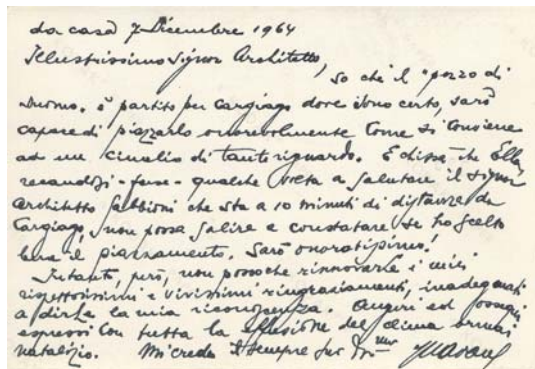 da casa 7 Dicembre 1964
Illustrissimo Signor Architetto,
so che il "pezzo di
Duomo" è partito per Cargiago dove sono certo, sarò
capace di piazzarlo onorevolmente come si conviene
ad un cimelio di tanto riguardo. E dissà che Ella
recandosi - forse - qualche volta a salutare il signor
Architetto Gabbioni che sta a 10 minuti di distanza da
Cargiago, non possa salire e constatare se ho scelto
bene il piazzamento. Sarò onoratissimo!
Intanto, però, non posso che rinnovarle i miei
rispettosissimi e vivissimi ringraziamenti, inadeguati
a dirle la mia riconoscenza. Auguri ed ossequi
espressi con tutta la effusione del clima ormai
natalizio. Mi creda sempre suo